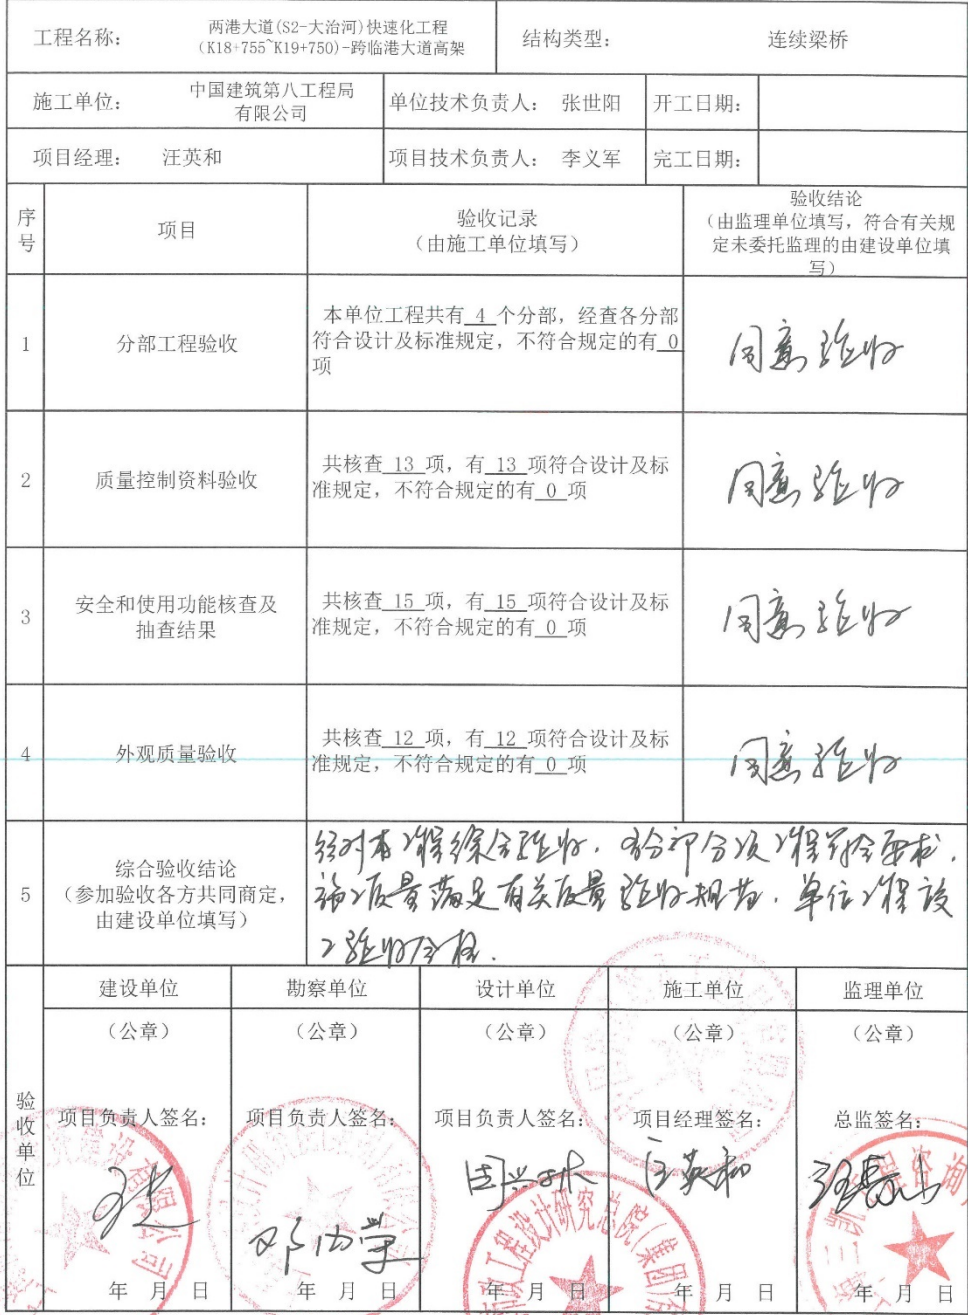 工程名称: 两港大道(S2-大治河)快速化工程
(K18+755~K19+750)-跨临港大道高架
结构类型: 连续梁桥
施工单位: 中国建筑第八工程局
有限公司
单位技术负责人: 张世阳 开工日期:
项目经理: 汪英和 项目技术负责人: 李义军 完工日期:
序号 项目 验收记录
(由施工单位填写)
验收结论
(由监理单位填写, 符合有关规
定未委托监理的由建设单位填
写)
1 分部工程验收
本单位工程共有 4 个分部, 经查各分部
符合设计及标准规定, 不符合规定的有 0
项
同意验收
2 质量控制资料验收
共核查 13 项, 有 13 项符合设计及标
准规定, 不符合规定的有 0 项
同意验收
3 安全和使用功能核查及
抽查结果
共核查 15 项, 有 15 项符合设计及标
准规定, 不符合规定的有 0 项
同意验收
4 外观质量验收
共核查 12 项, 有 12 项符合设计及标
准规定, 不符合规定的有 0 项
同意验收
5 综合验收结论
(参加验收各方共同商定,
由建设单位填写)
经对本工程综合验收, 各分部分项工程符合要求,
施工质量满足有关质量验收规范, 单位工程竣
工验收合格.
验收单位
建设单位 勘察单位 设计单位 施工单位 监理单位
(公章) (公章) (公章) (公章) (公章)
项目负责人签名: 项目负责人签名: 项目负责人签名: 项目经理签名: 总监签名:
汪英和
年 月 日 年 月 日 年 月 日 年 月 日 年 月 日